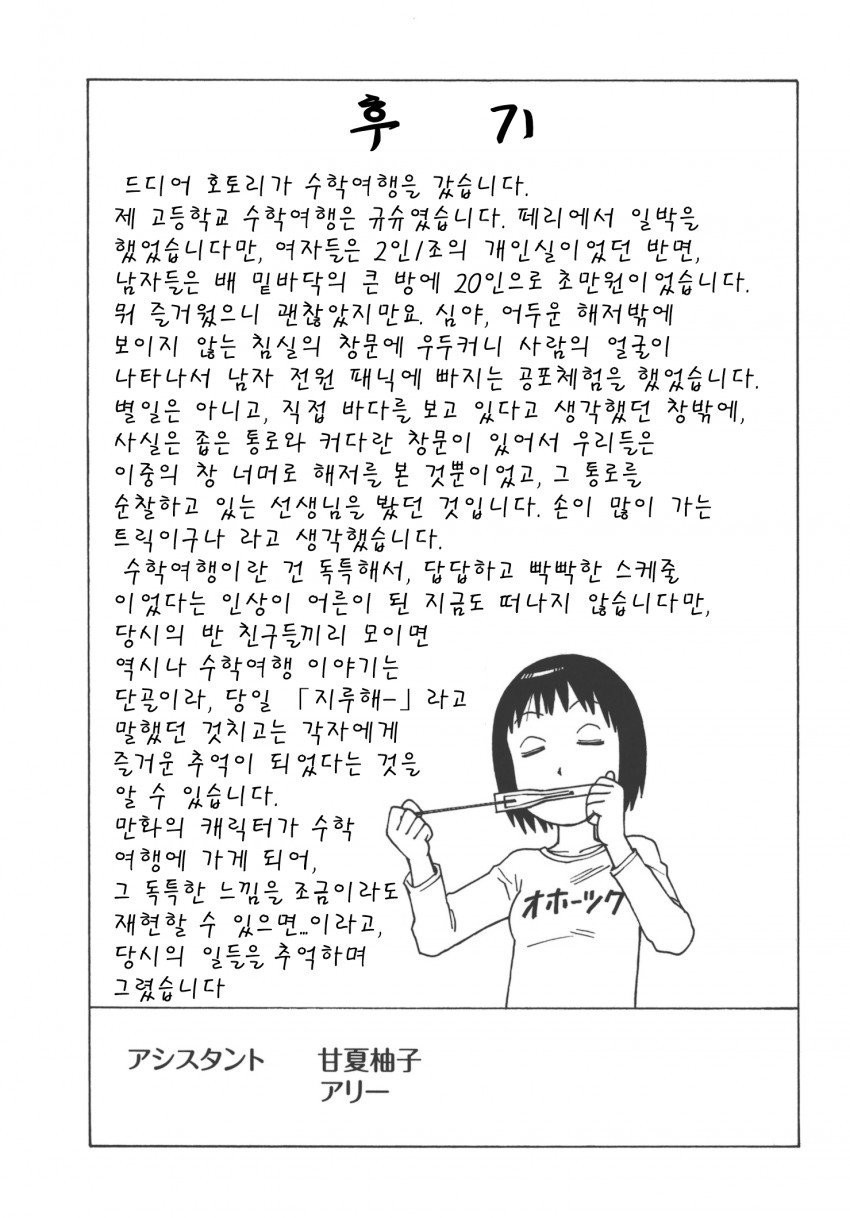 후 기
드디어 호토리가 수학여행을 갔습니다.
제 고등학교 수학여행은 규슈였습니다. 페리에서 일박을
했었습니다만, 여자들은 2인1조의 개인실이었던 반면,
남자들은 배 밑바닥의 큰 방에 20인으로 초만원이었습니다.
뭐 즐거웠으니 괜찮았지만요. 심야, 어두운 해저밖에
보이지 않는 침실의 창문에 우두커니 사람의 얼굴이
나타나서 남자 전원 패닉에 빠지는 공포체험을 했었습니다.
별일은 아니고, 직접 바다를 보고 있다고 생각했던 창밖에,
사실은 좁은 통로와 커다란 창문이 있어서 우리들은
이중의 창 너머로 해저를 본 것뿐이었고, 그 통로를
순찰하고 있는 선생님을 봤던 것입니다. 손이 많이 가는
트릭이구나 라고 생각했습니다.
수학여행이란 건 독특해서, 답답하고 빡빡한 스케줄
이었다는 인상이 어른이 된 지금도 떠나지 않습니다만,
당시의 반 친구들끼리 모이면
역시나 수학여행 이야기는
단골이라, 당일 「지루해-」라고
말했던 것치고는 각자에게
즐거운 추억이 되었다는 것을
알 수 있습니다.
만화의 캐릭터가 수학
여행에 가게 되어,
그 독특한 느낌을 조금이라도
재현할 수 있으면...이라고,
당시의 일들을 추억하며
그렸습니다
オホーツク
アシスタント 甘夏柚子
アリー